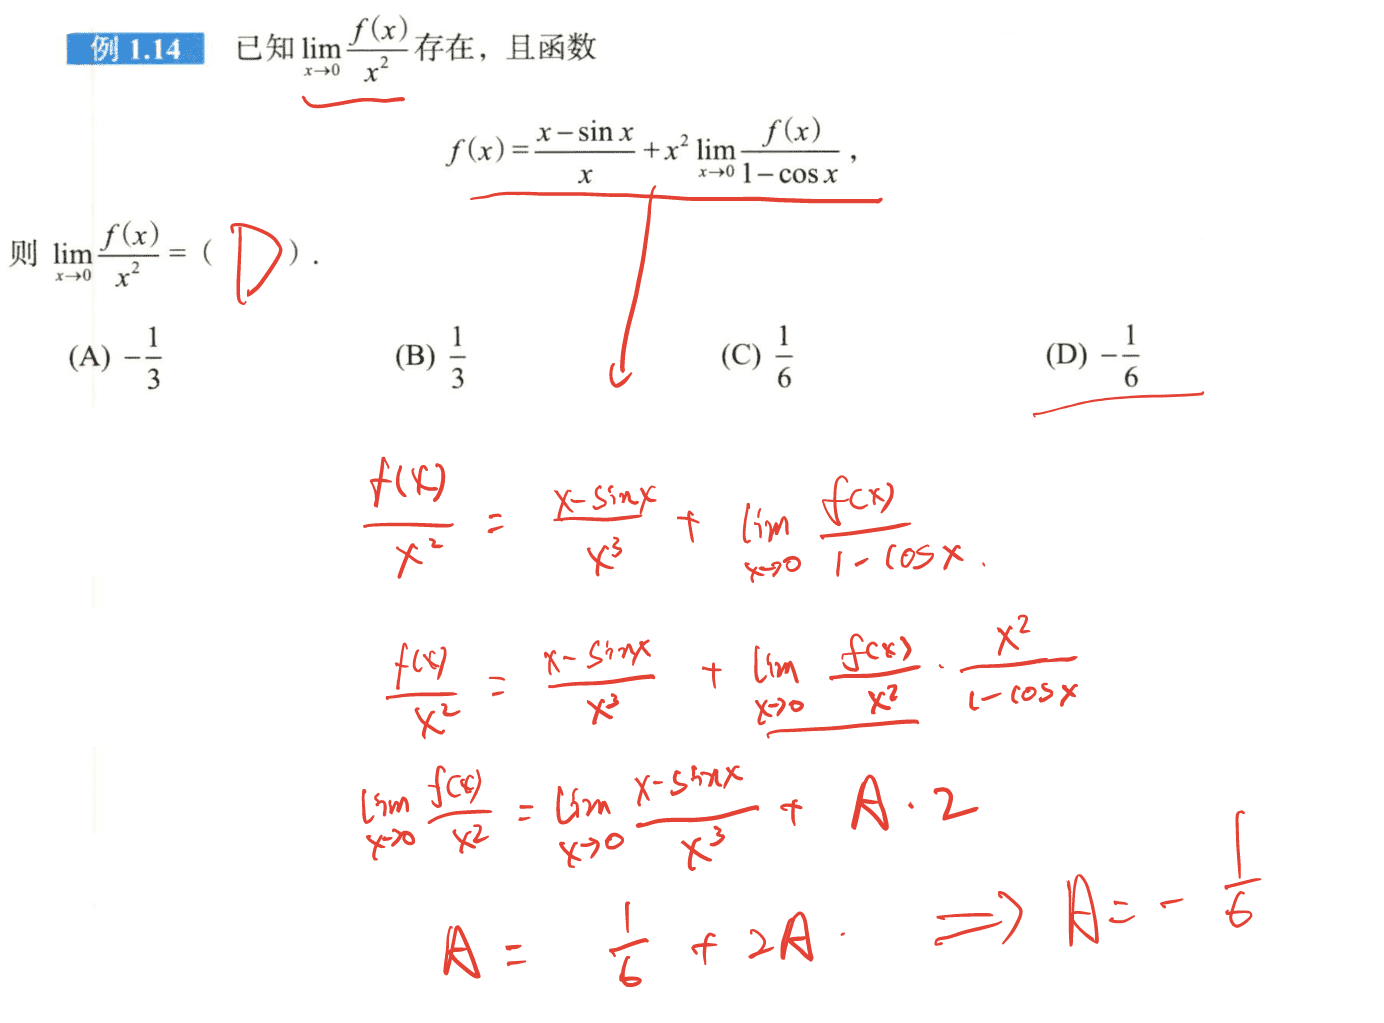 例 1.14 已知 lim_{x→0} f(x)/x² 存在，且函数
f(x) = (x－sin x)/x + x² lim_{x→0} f(x)/(1－cos x)，
则 lim_{x→0} f(x)/x² =（ D ）．
(A) －1/3 (B) 1/3 (C) 1/6 (D) －1/6
f(x)/x² = (x－sinx)/x³ + lim_{x→0} f(x)/(1－cosx).
f(x)/x² = (x－sinx)/x³ + lim_{x→0} f(x)/x² · x²/(1－cosx)
lim_{x→0} f(x)/x² = lim_{x→0} (x－sinx)/x³ + A · 2
A = 1/6 + 2A. ⟹ A = －1/6